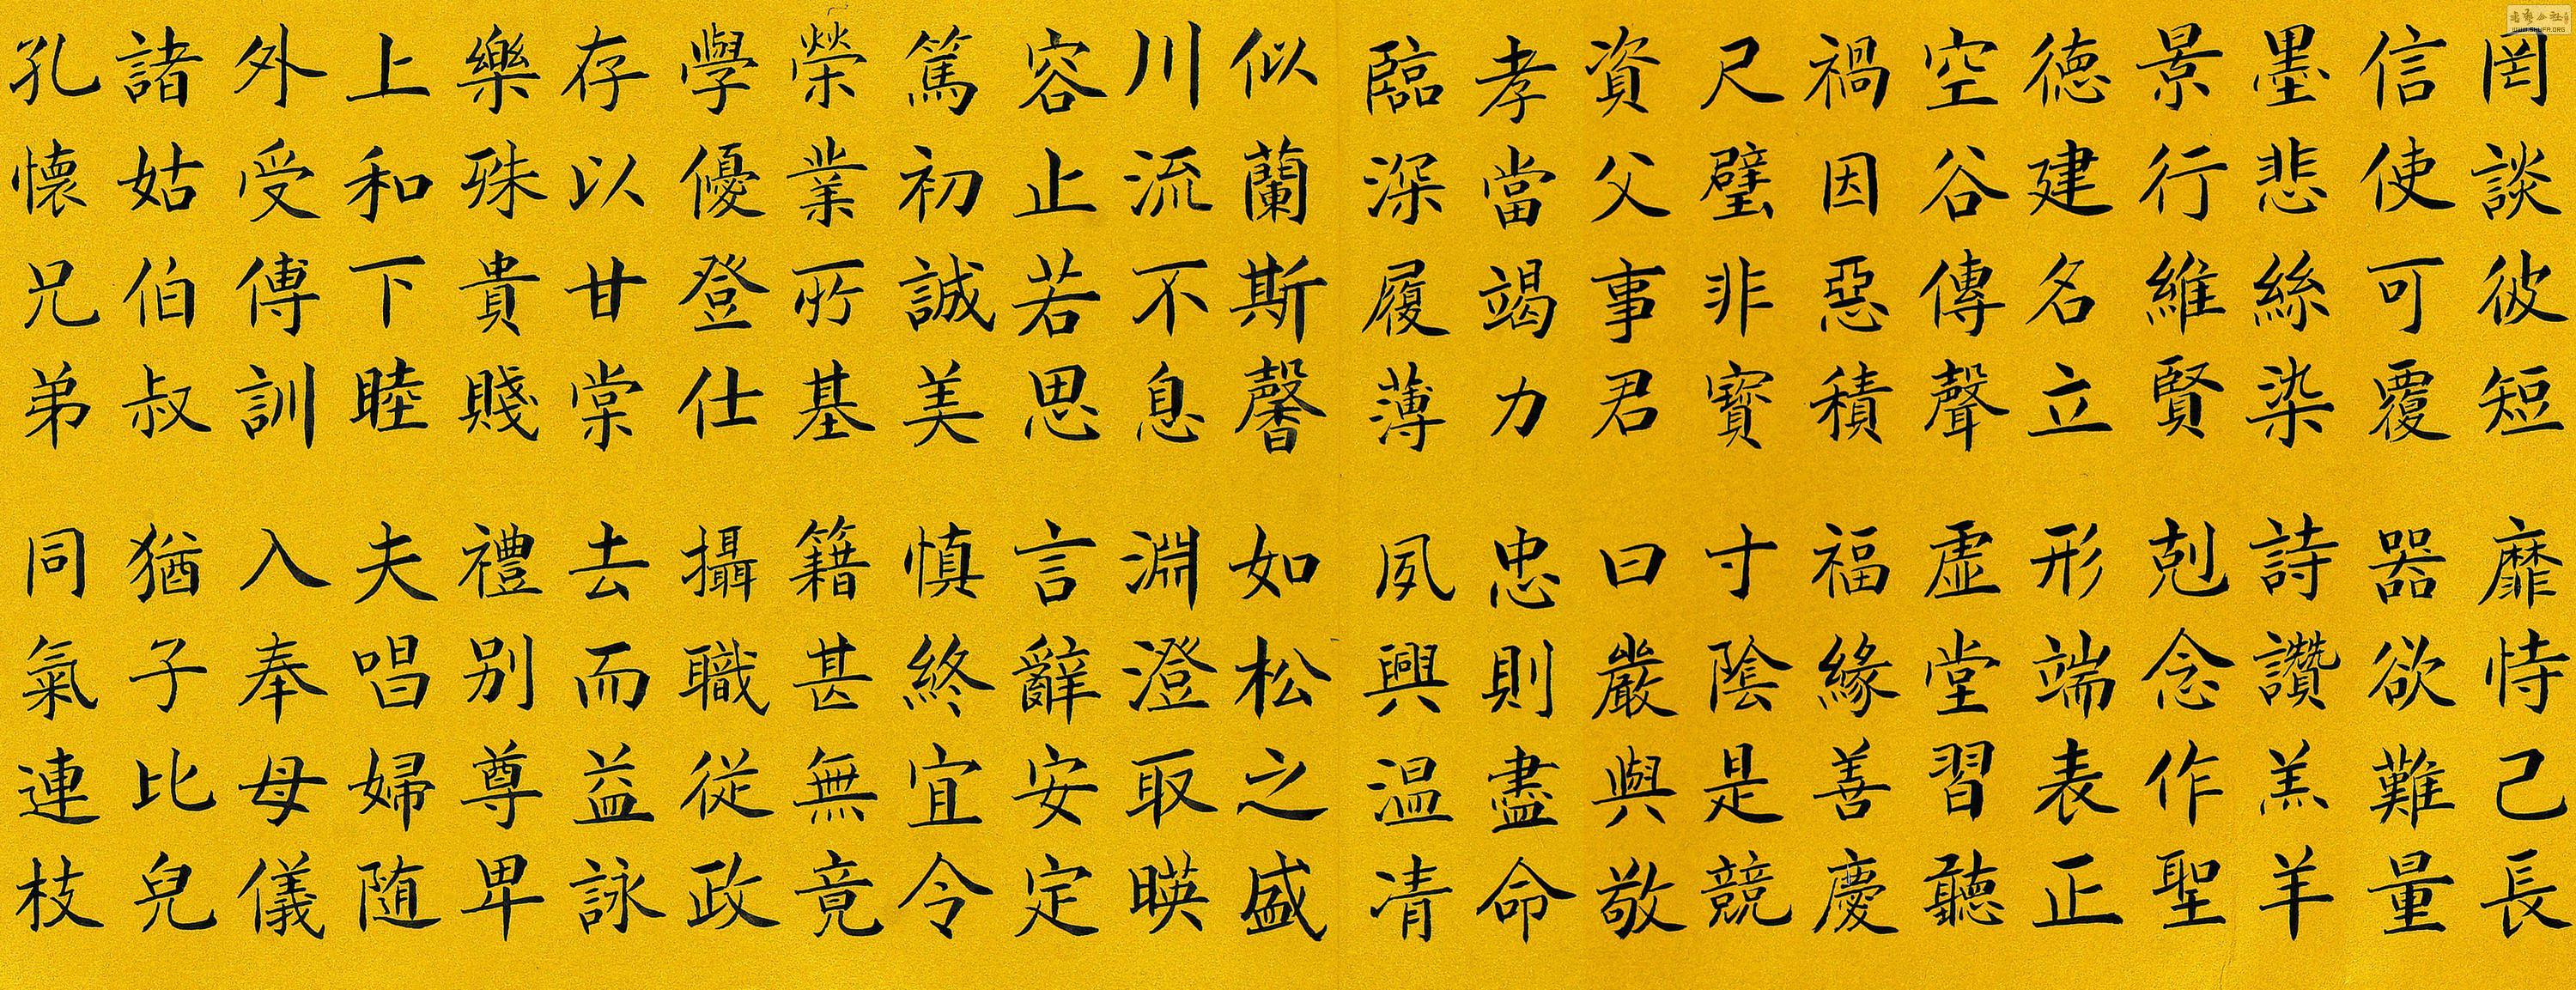 罔談彼短靡恃己長
信使可覆器欲難量
墨悲絲染詩讚羔羊
景行維賢剋念作聖
德建名立形端表正
空谷傳聲虛堂習聽
禍因惡積福緣善慶
尺璧非寶寸陰是競
資父事君曰嚴與敬
孝當竭力忠則盡命
臨深履薄夙興温凊
似蘭斯馨如松之盛
川流不息淵澄取暎
容止若思言辭安定
篤初誠美慎終宜令
榮業所基籍甚無竟
學優登仕攝職從政
存以甘棠去而益詠
樂殊貴賤禮別尊卑
上和下睦夫唱婦随
外受傅訓入奉母儀
諸姑伯叔猶子比兒
孔懐兄弟同氣連枝
WWW.SHUFA.ORG